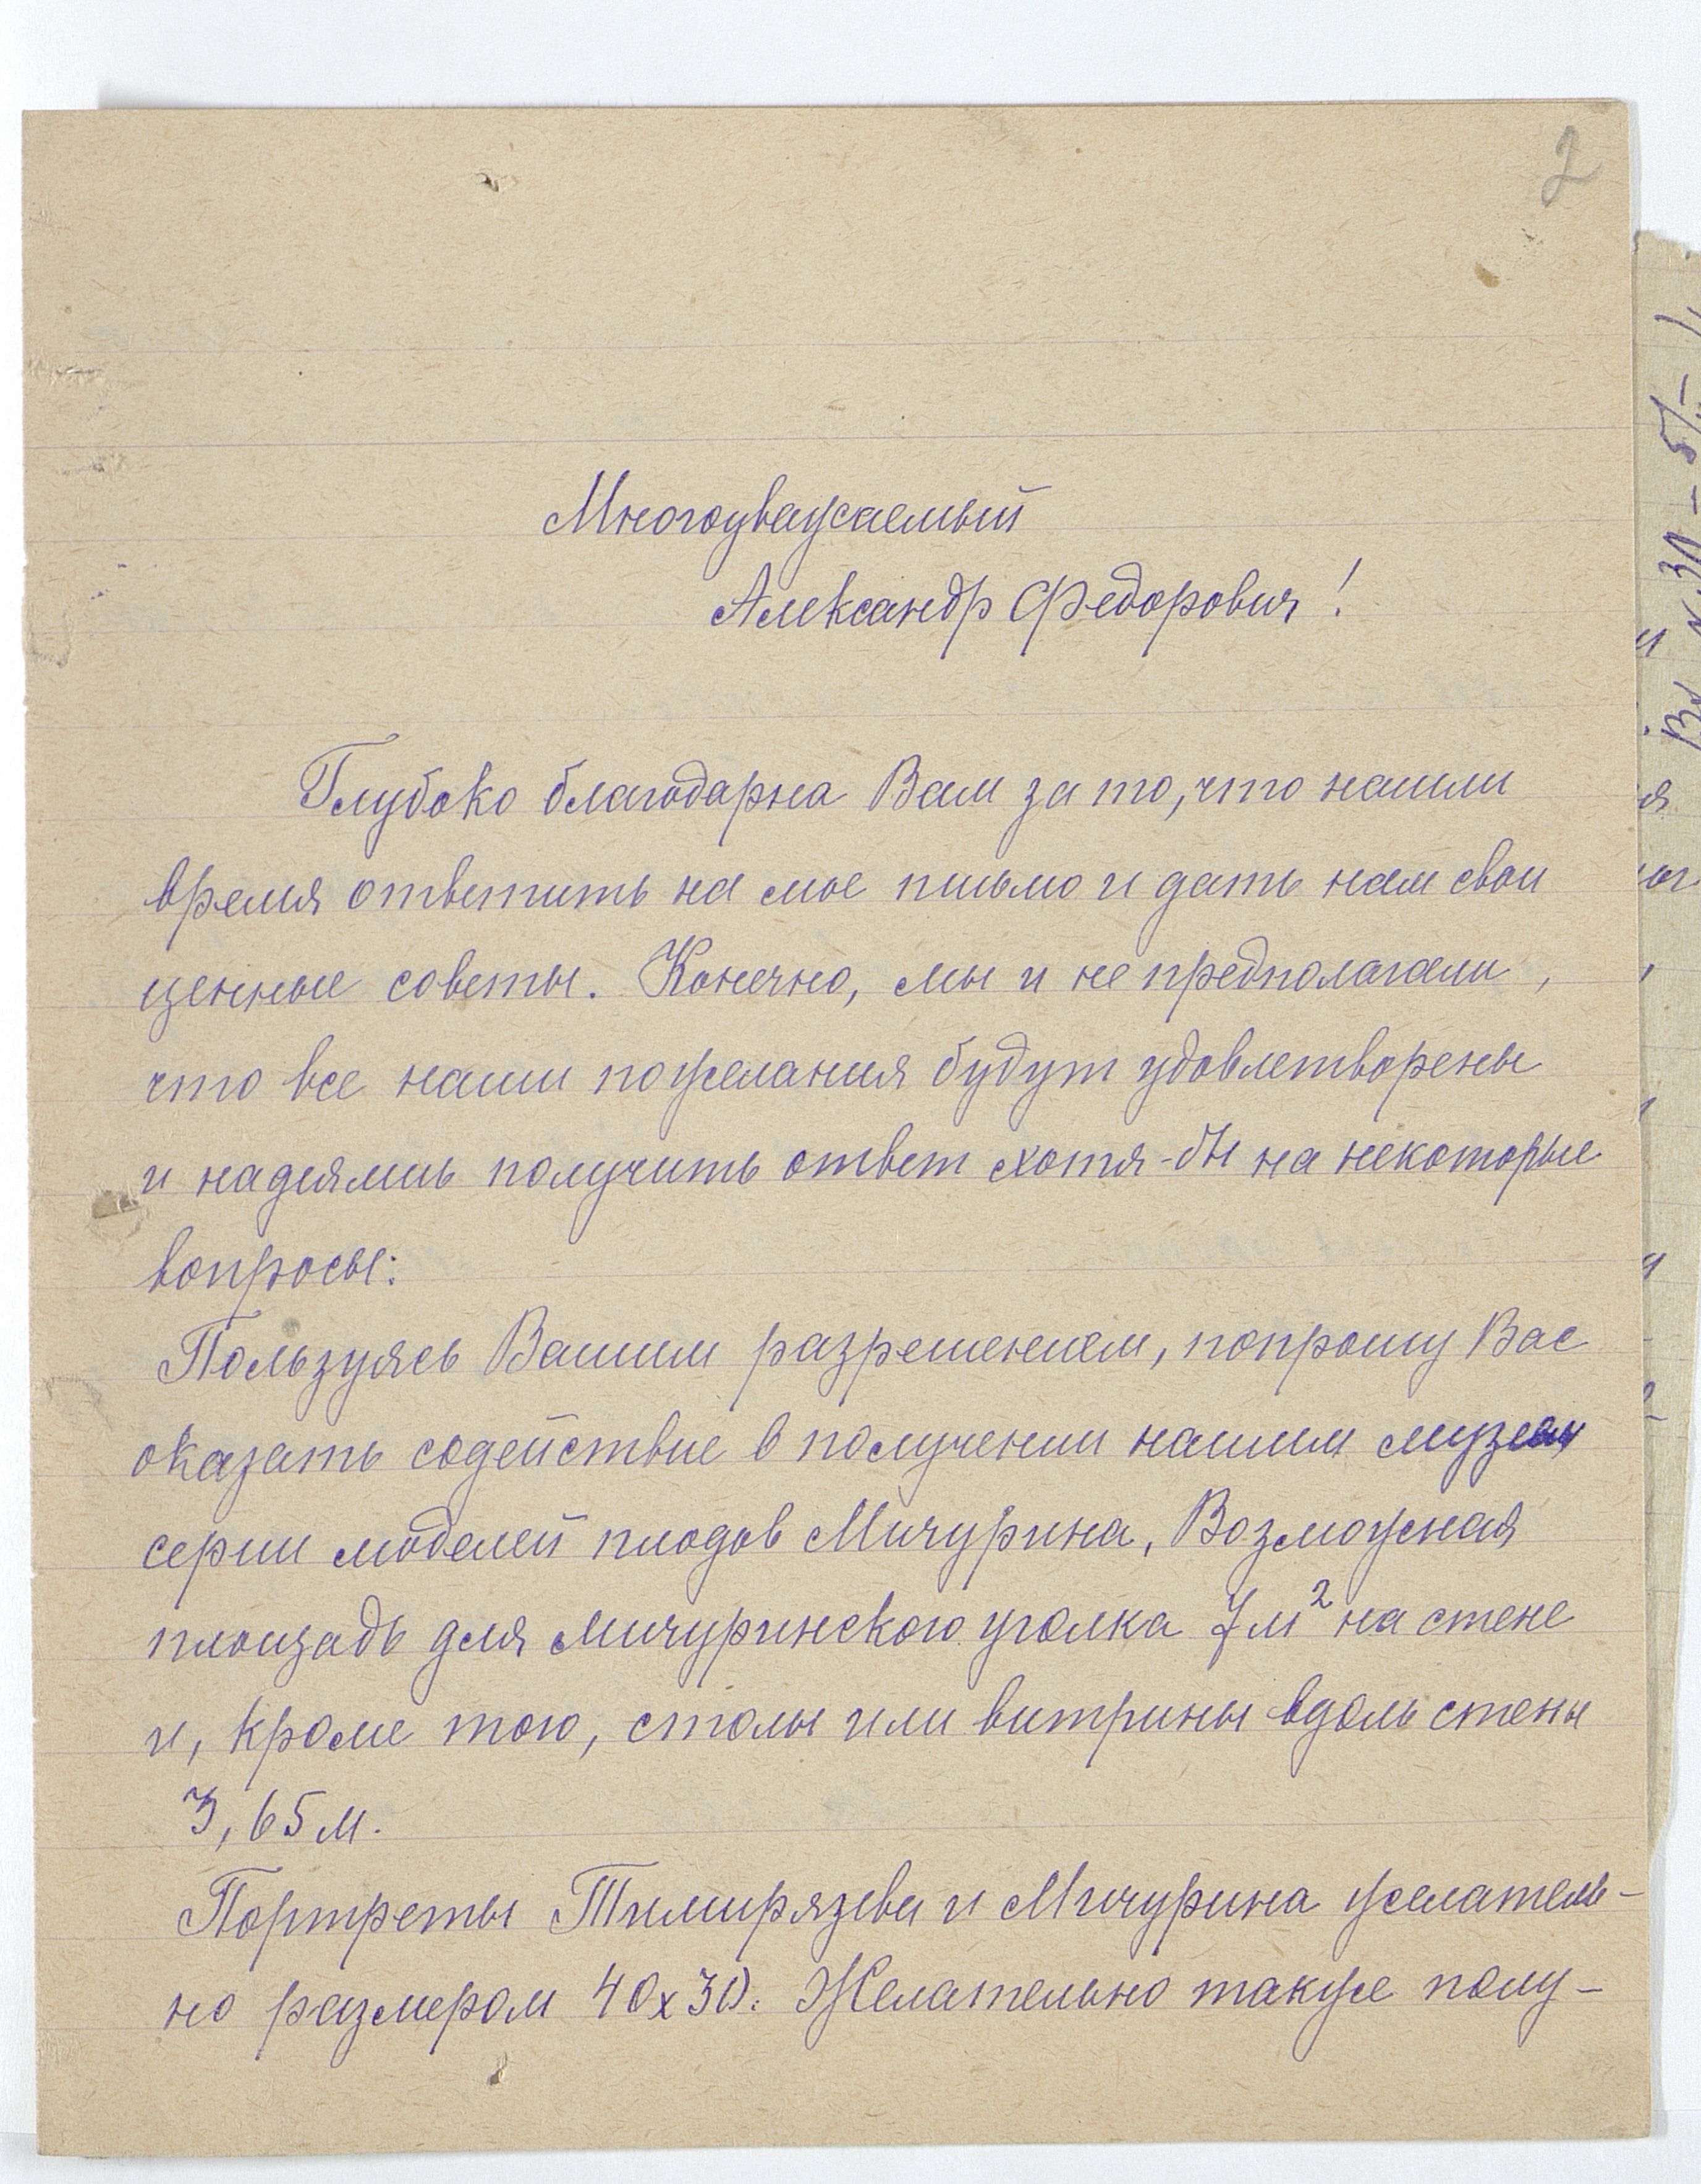 2
Многоуважаемый
Александр Федорович!
Глубоко благодарна Вам за то, что нашли
время ответить на мое письмо и дать нам свои
ценные советы. Конечно, мы и не предполагали,
что все наши пожелания будут удовлетворены
и надеялись получить ответ хотя-бы на некоторые
вопросы:
Пользуясь Вашим разрешением, попрошу Вас
оказать содействие в получении нашим музеем
серии моделей плодов Мичурина. Возможная
площадь для мичуринского уголка 7 м² на стене
и, кроме того, столы или витрины вдоль стены
3,65 м.
Портреты Тимирязева и Мичурина желатель-
но размером 40х30. Желательно также полу-